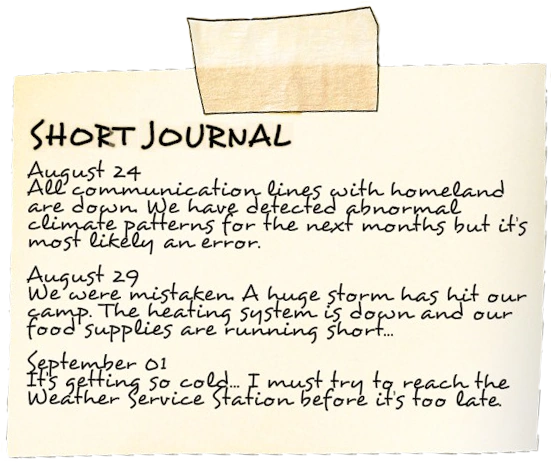 SHORT JOURNAL
August 24
All communication lines with homeland
are down. We have detected abnormal
climate patterns for the next months but it's
most likely an error.
August 29
We were mistaken. A huge storm has hit our
camp. The heating system is down and our
food supplies are running short...
September 01
It's getting so cold... I must try to reach the
Weather Service Station before it's too late.